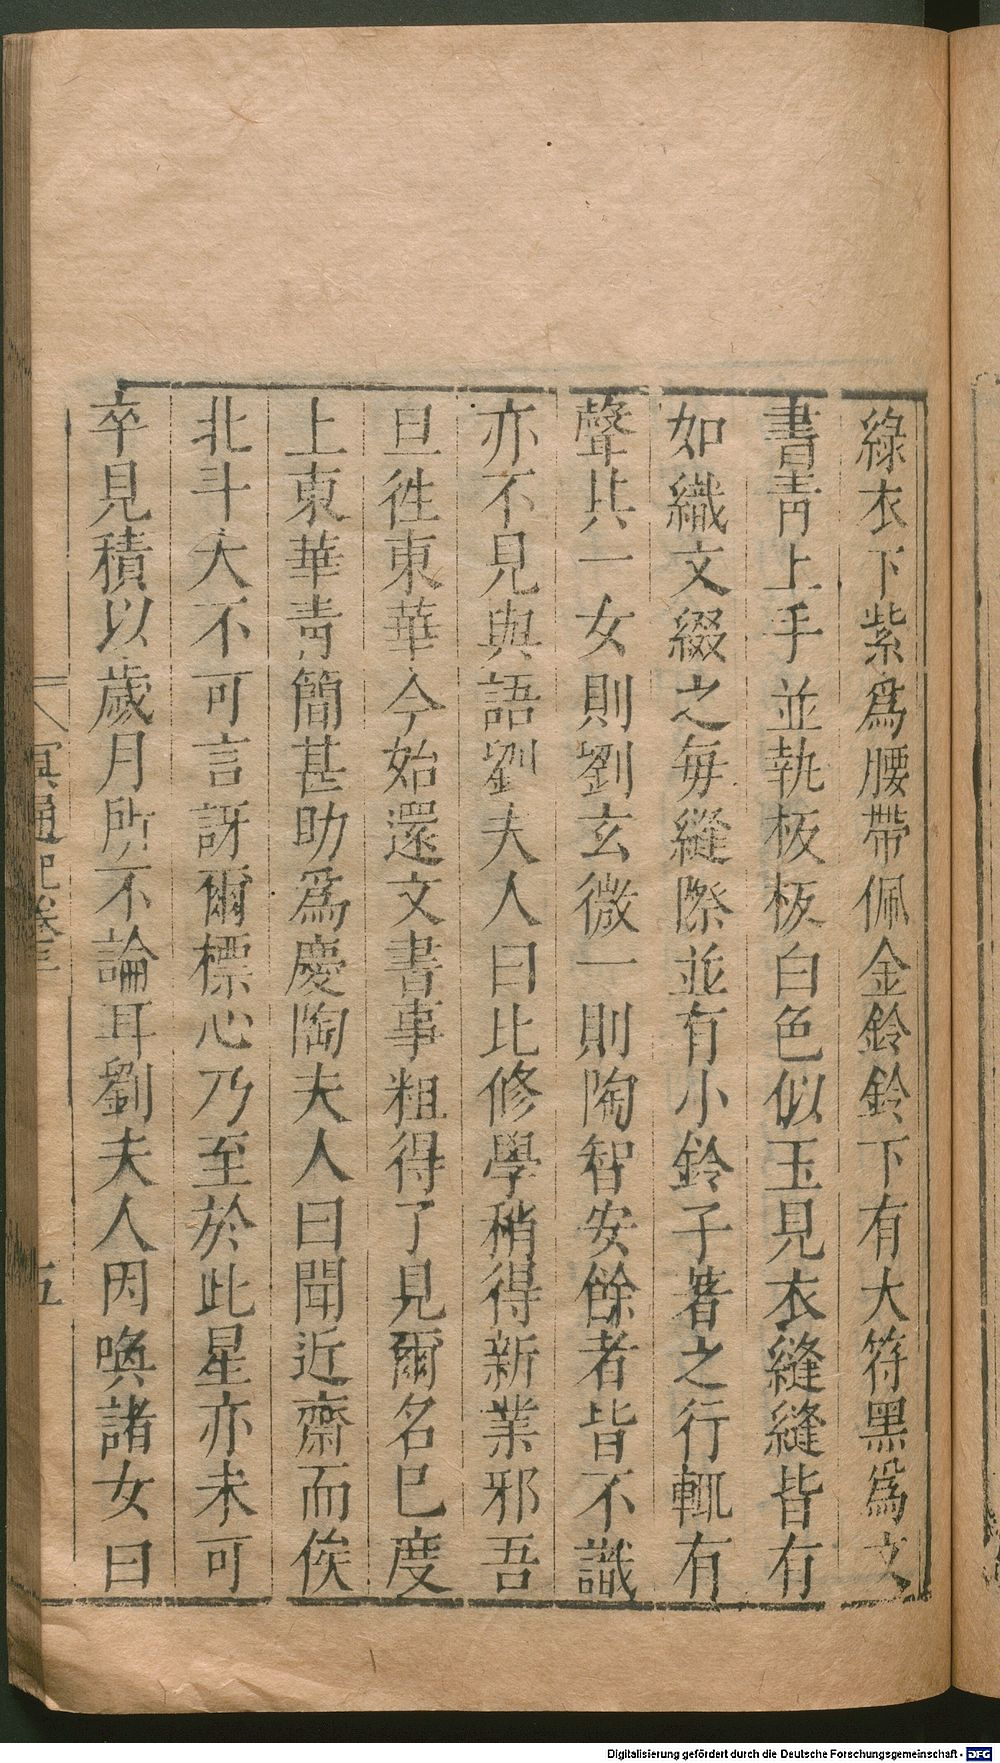 綠衣下紫爲腰帶佩金鈴鈴下有大符黑爲文
書青上手並執板板白色似玉見衣縫縫皆有
如織文綴之毎縫際並有小鈴子著之行輒有
聲其一女則劉玄微一則陶智安餘者皆不識
亦不見與語劉夫人曰比修學稍得新業邪吾
旦徃東華今始還文書事粗得了見爾名巳度
上東華青簡甚助爲慶陶夫人曰聞近齋而俟
北斗大不可言訝爾標心乃至於此星亦未可
卒見積以歲月所不論耳劉夫人因喚諸女曰
冥通記卷三
五
Digitalisierung gefördert durch die Deutsche Forschungsgemeinschaft - DFG